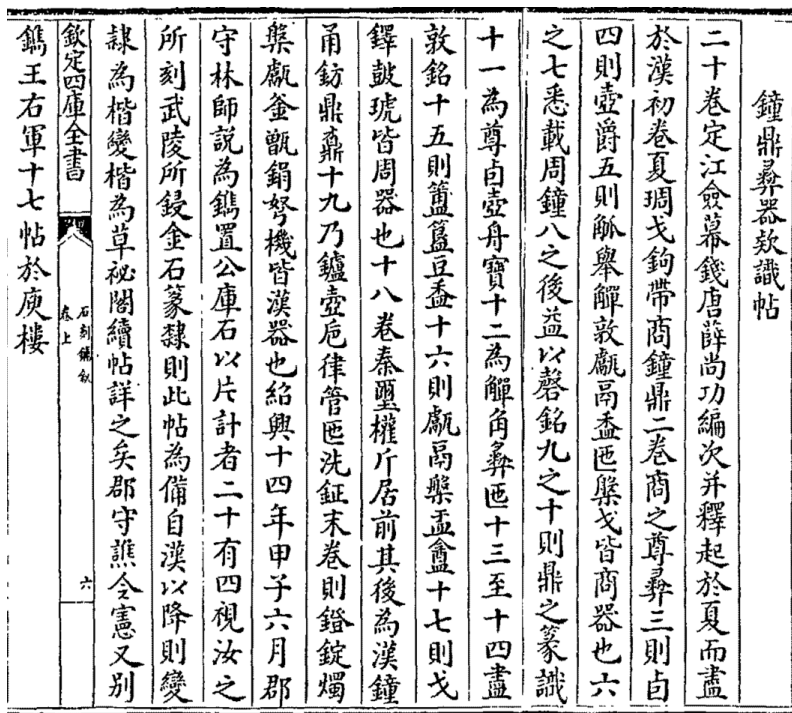 鐘鼎彝器欵識帖
二十卷定江僉幕錢唐薛尚功編次并釋起於夏而盡
於漢初卷夏琱戈鉤帶商鐘鼎二卷商之尊彝三則卣
四則壺爵五則觚舉觶敦甗鬲盉匜槃戈皆商器也六
之七悉載周鐘八之後益以磬銘九之十則鼎之篆識
十一為尊卣壺舟寶十二為觶角彝匜十三至十四盡
敦銘十五則簠簋豆盉十六則甗鬲槃盂盦十七則戈
鐸鼓琥皆周器也十八卷秦璽權斤居前其後為漢鐘
甬鈁鼎鼒十九乃鑪壺巵律管匜洗鉦末卷則鐙錠燭
槃甗釜甑鋗弩機皆漢器也紹興十四年甲子六月郡
守林師説為鐫置公庫石以片計者二十有四視汝之
所刻武陵所鋟金石篆隸則此帖為備自漢以降則變
隸為楷變楷為草祕閣續帖詳之矣郡守譙令憲又別
欽定四庫全書
石刻鋪敘
卷上
六
鐫王右軍十七帖於庾樓